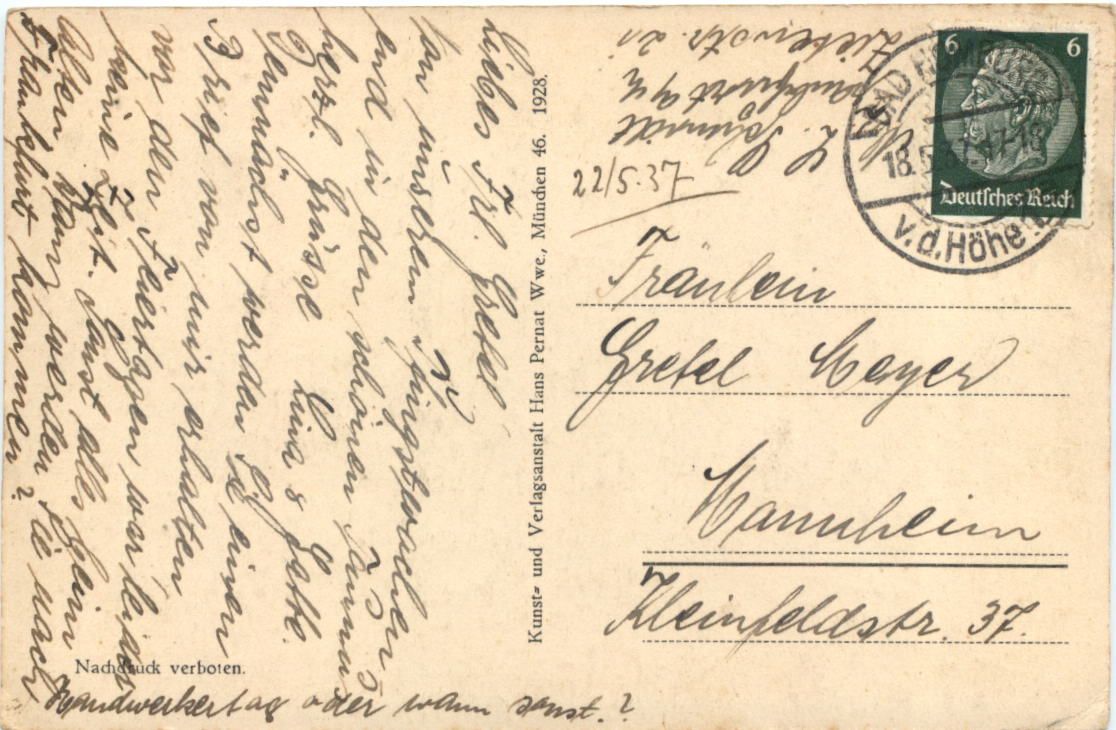 Liebes Frl. Gretel!
Von unserem Pfingstwochen
end in den schönen Taunus
herzl. Grüsse Lina & Gatte.
Demnächst werden Sie einen
Brief von mir erhalten
vor den Feiertagen war leider
keine Zeit. Sonst alles beim
alten. Wann werden Sie nach
Frankfurt kommen?
Handwerkertag oder wann sonst.?
Nachdruck verboten.
Kunst- und Verlagsanstalt Hans Pernat Wwe., München 46. 1928.
L. Schmidt
Frankfurt a/M
22/5.37
6 6
Deutsches Reich
BAD HOMBURG
18.5.37.17-18
v.d.Höhe
Fräulein
Gretel Meyer
Mannheim
Kleinfeldstr. 37.